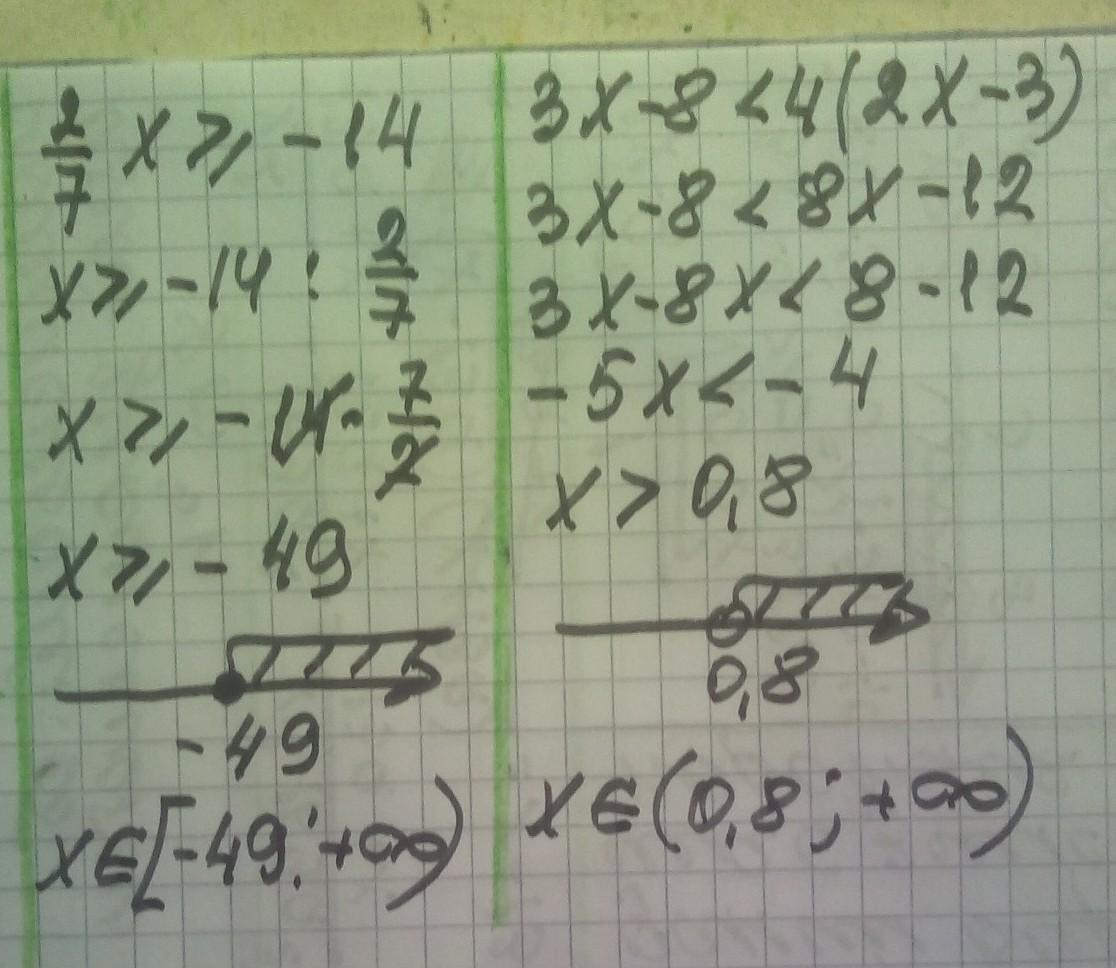 2/7 x ⩾ -14
x ⩾ -14 : 2/7
x ⩾ -14 · 7/2
x ⩾ - 49
-49
x∈[-49; +∞)
3x-8<4(2x-3)
3x-8 < 8x-12
3x-8x< 8-12
-5x<-4
x > 0,8
0,8
x∈(0,8; +∞)